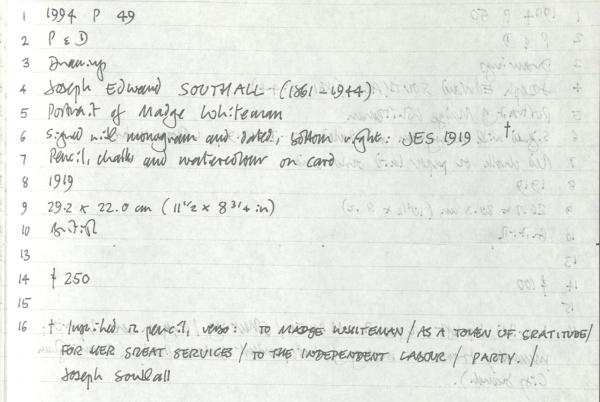 1 1994 P 49
2 P & D
3 Drawing
4 Joseph Edward SOUTHALL (1861-1944)
5 Portrait of Madge Whiteman
6 signed with monogram and dated, bottom right: JES 1919 †.
7 Pencil, chalks and watercolour on card
8 1919
9 29.2 x 22.0 cm (11 1/2 x 8 3/4 in)
10 British
13
14 £ 250
15
16 † Inscribed in pencil, verso: TO MADGE WHITEMAN / AS A TOKEN OF GRATITUDE/
FOR HER GREAT SERVICES / TO THE INDEPENDENT LABOUR / PARTY. /
Joseph Southall